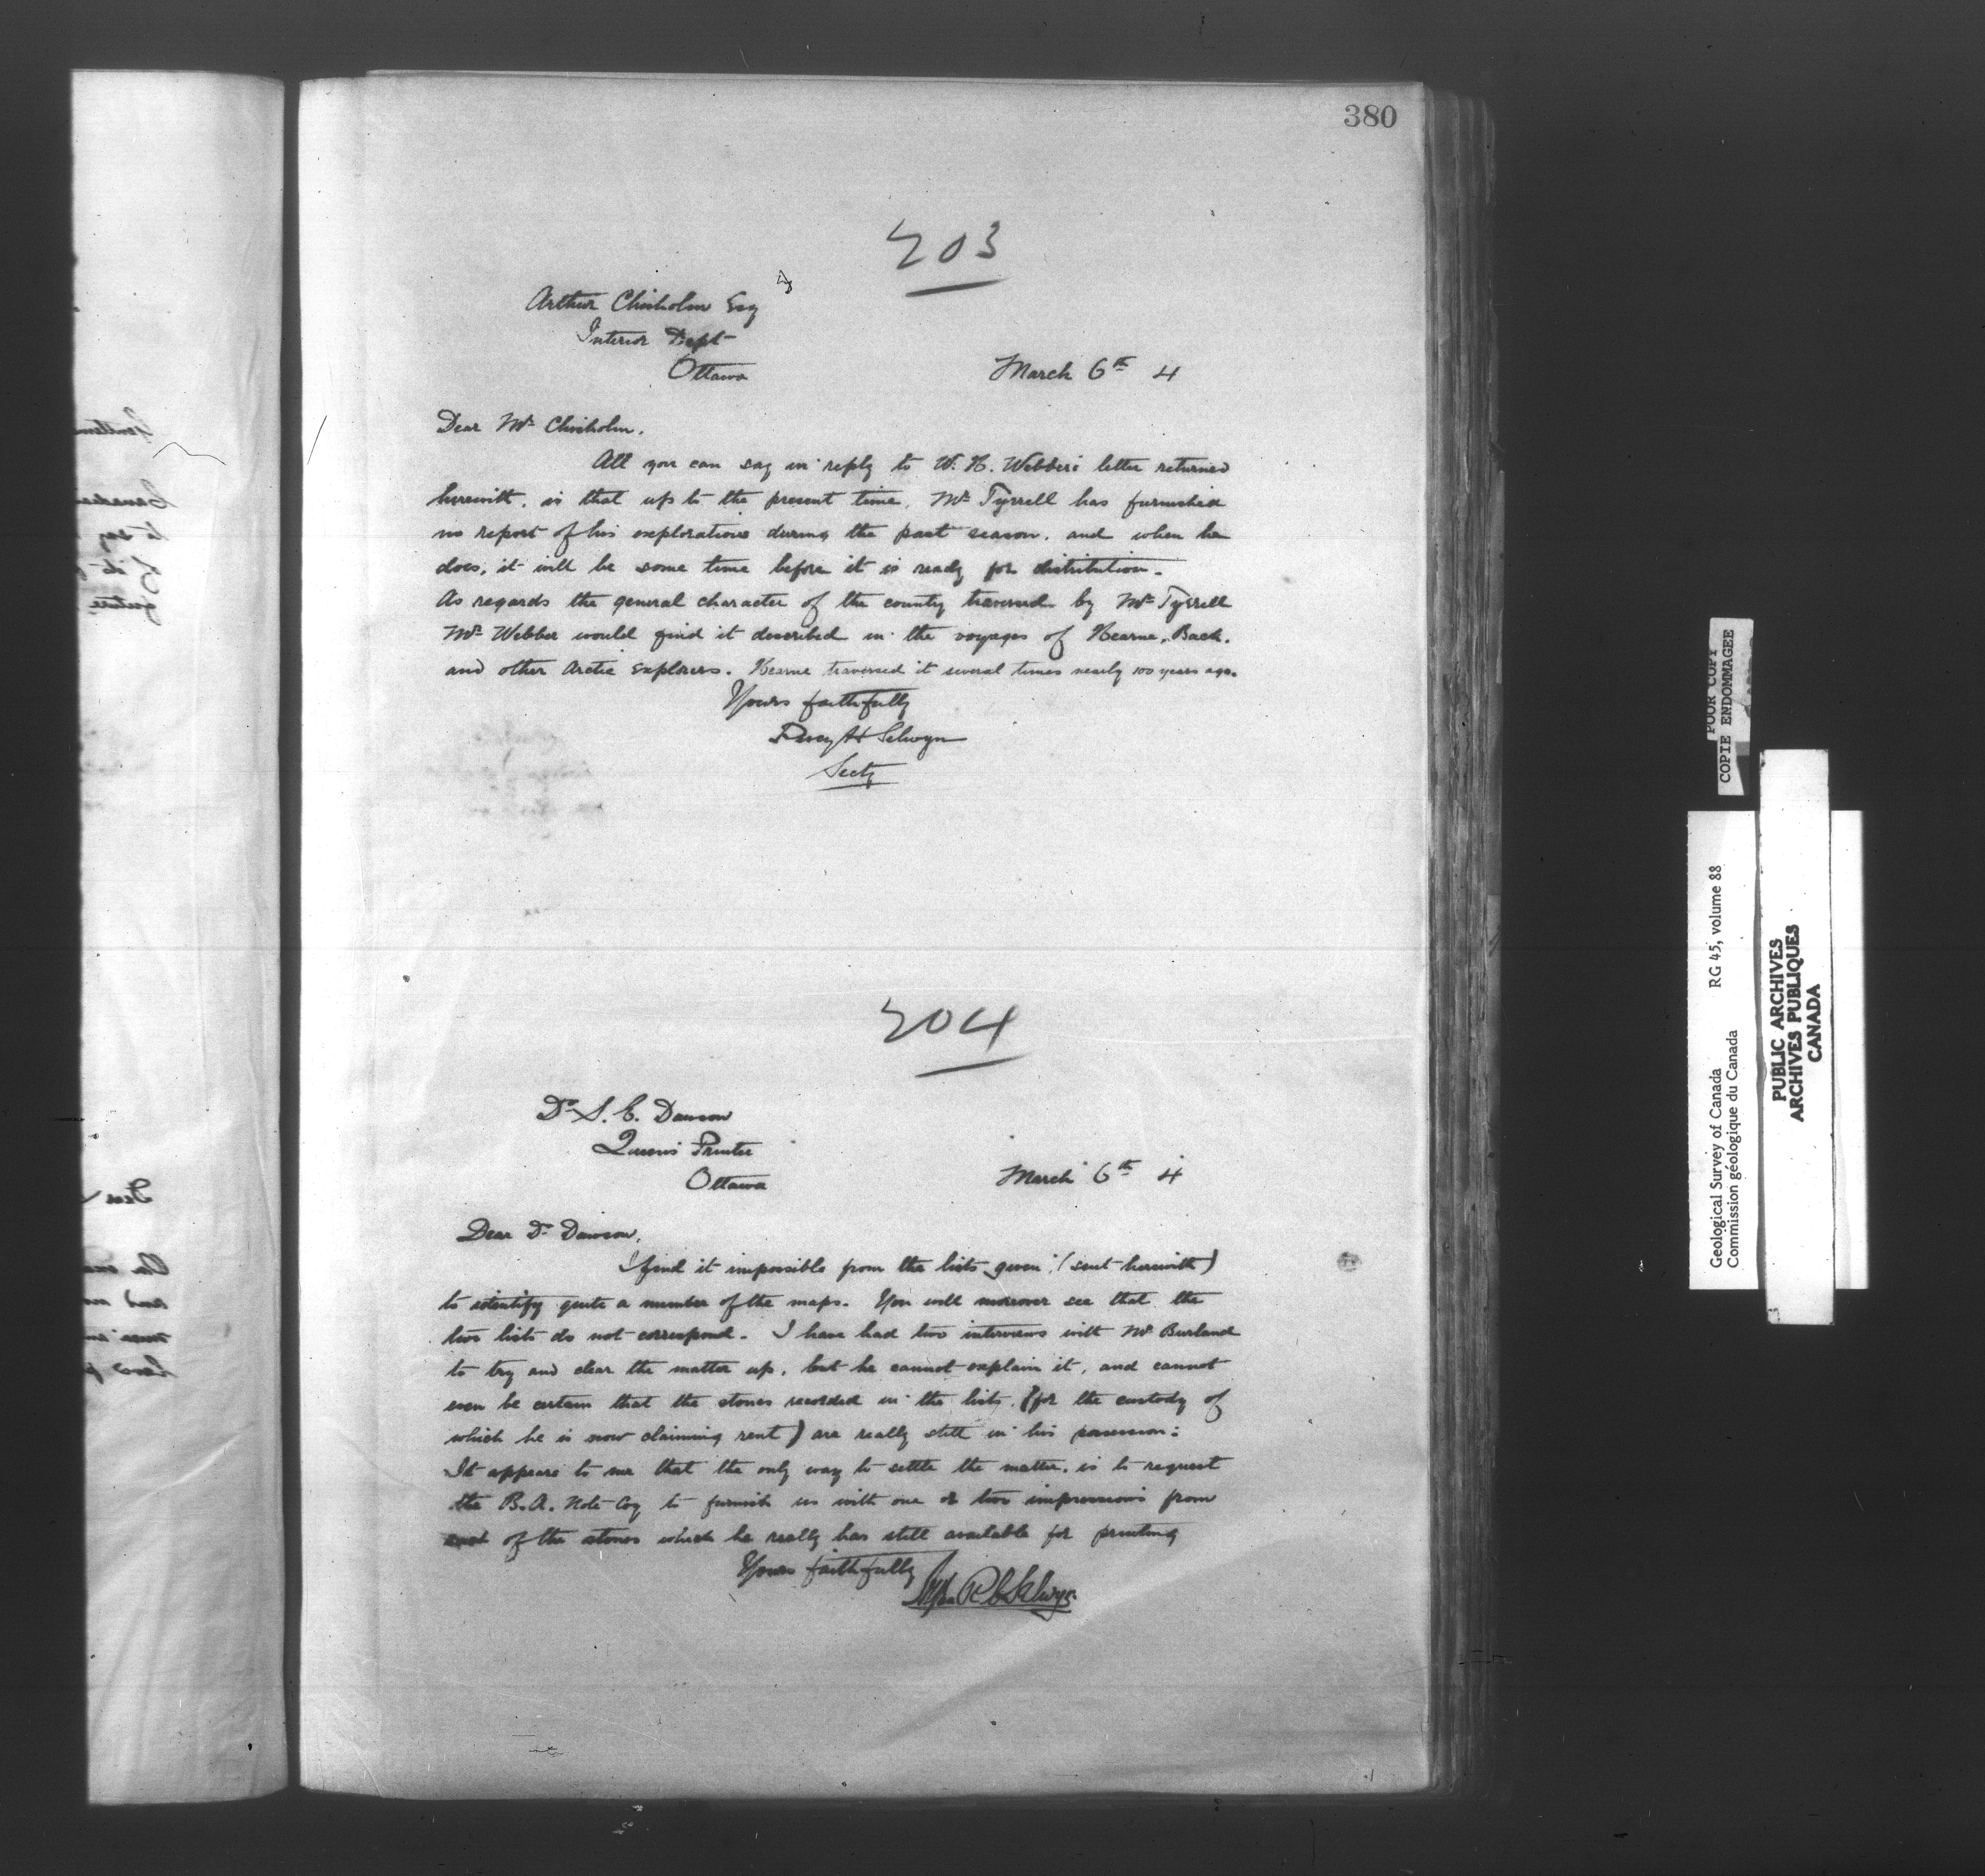 380
203
Arthur Chisholm Esq
Interior Dept
Ottawa
March 6th 4
Dear Mr Chisholm.
All you can say in reply to W. H. Webber's letter returned
herewith, is that up to the present time, Mr Tyrrell has furnished
no report of his explorations during the past season, and when he
does, it will be some time before it is ready for distribution.
As regards the general character of the county traversed by Mr Tyrrell
Mr Webber would find it described in the voyages of Hearne, Back,
and other Arctic Explorers. Hearne traversed it several times nearly 100 years ago.
Yours faithfully
Percy H Selwyn
Secty
204
Dr S. E. Dawson
Queens Printer
Ottawa
March 6th 4
Dear Dr Dawson,
I find it impossible from the lists given (sent herewith)
to identify quite a number of the maps. You will moreover see that the
two lists do not correspond. I have had two interviews with Mr Burland
to try and clear the matter up, but he cannot explain it, and cannot
even be certain that the stones recorded in the lists, (for the custody of
which he is now claiming rent) are really still in his possession:
It appears to me that the only way to settle the matter, is to request
the B. A. Note Coy to furnish us with one or two impressions from
each of the stones which he really has still available for printing
Yours faithfully
Alfred R C Selwyn
POOR COPY
COPIE ENDOMMAGEE
Geological Survey of Canada RG 45, volume 88
Commission géologique du Canada
PUBLIC ARCHIVES
ARCHIVES PUBLIQUES
CANADA